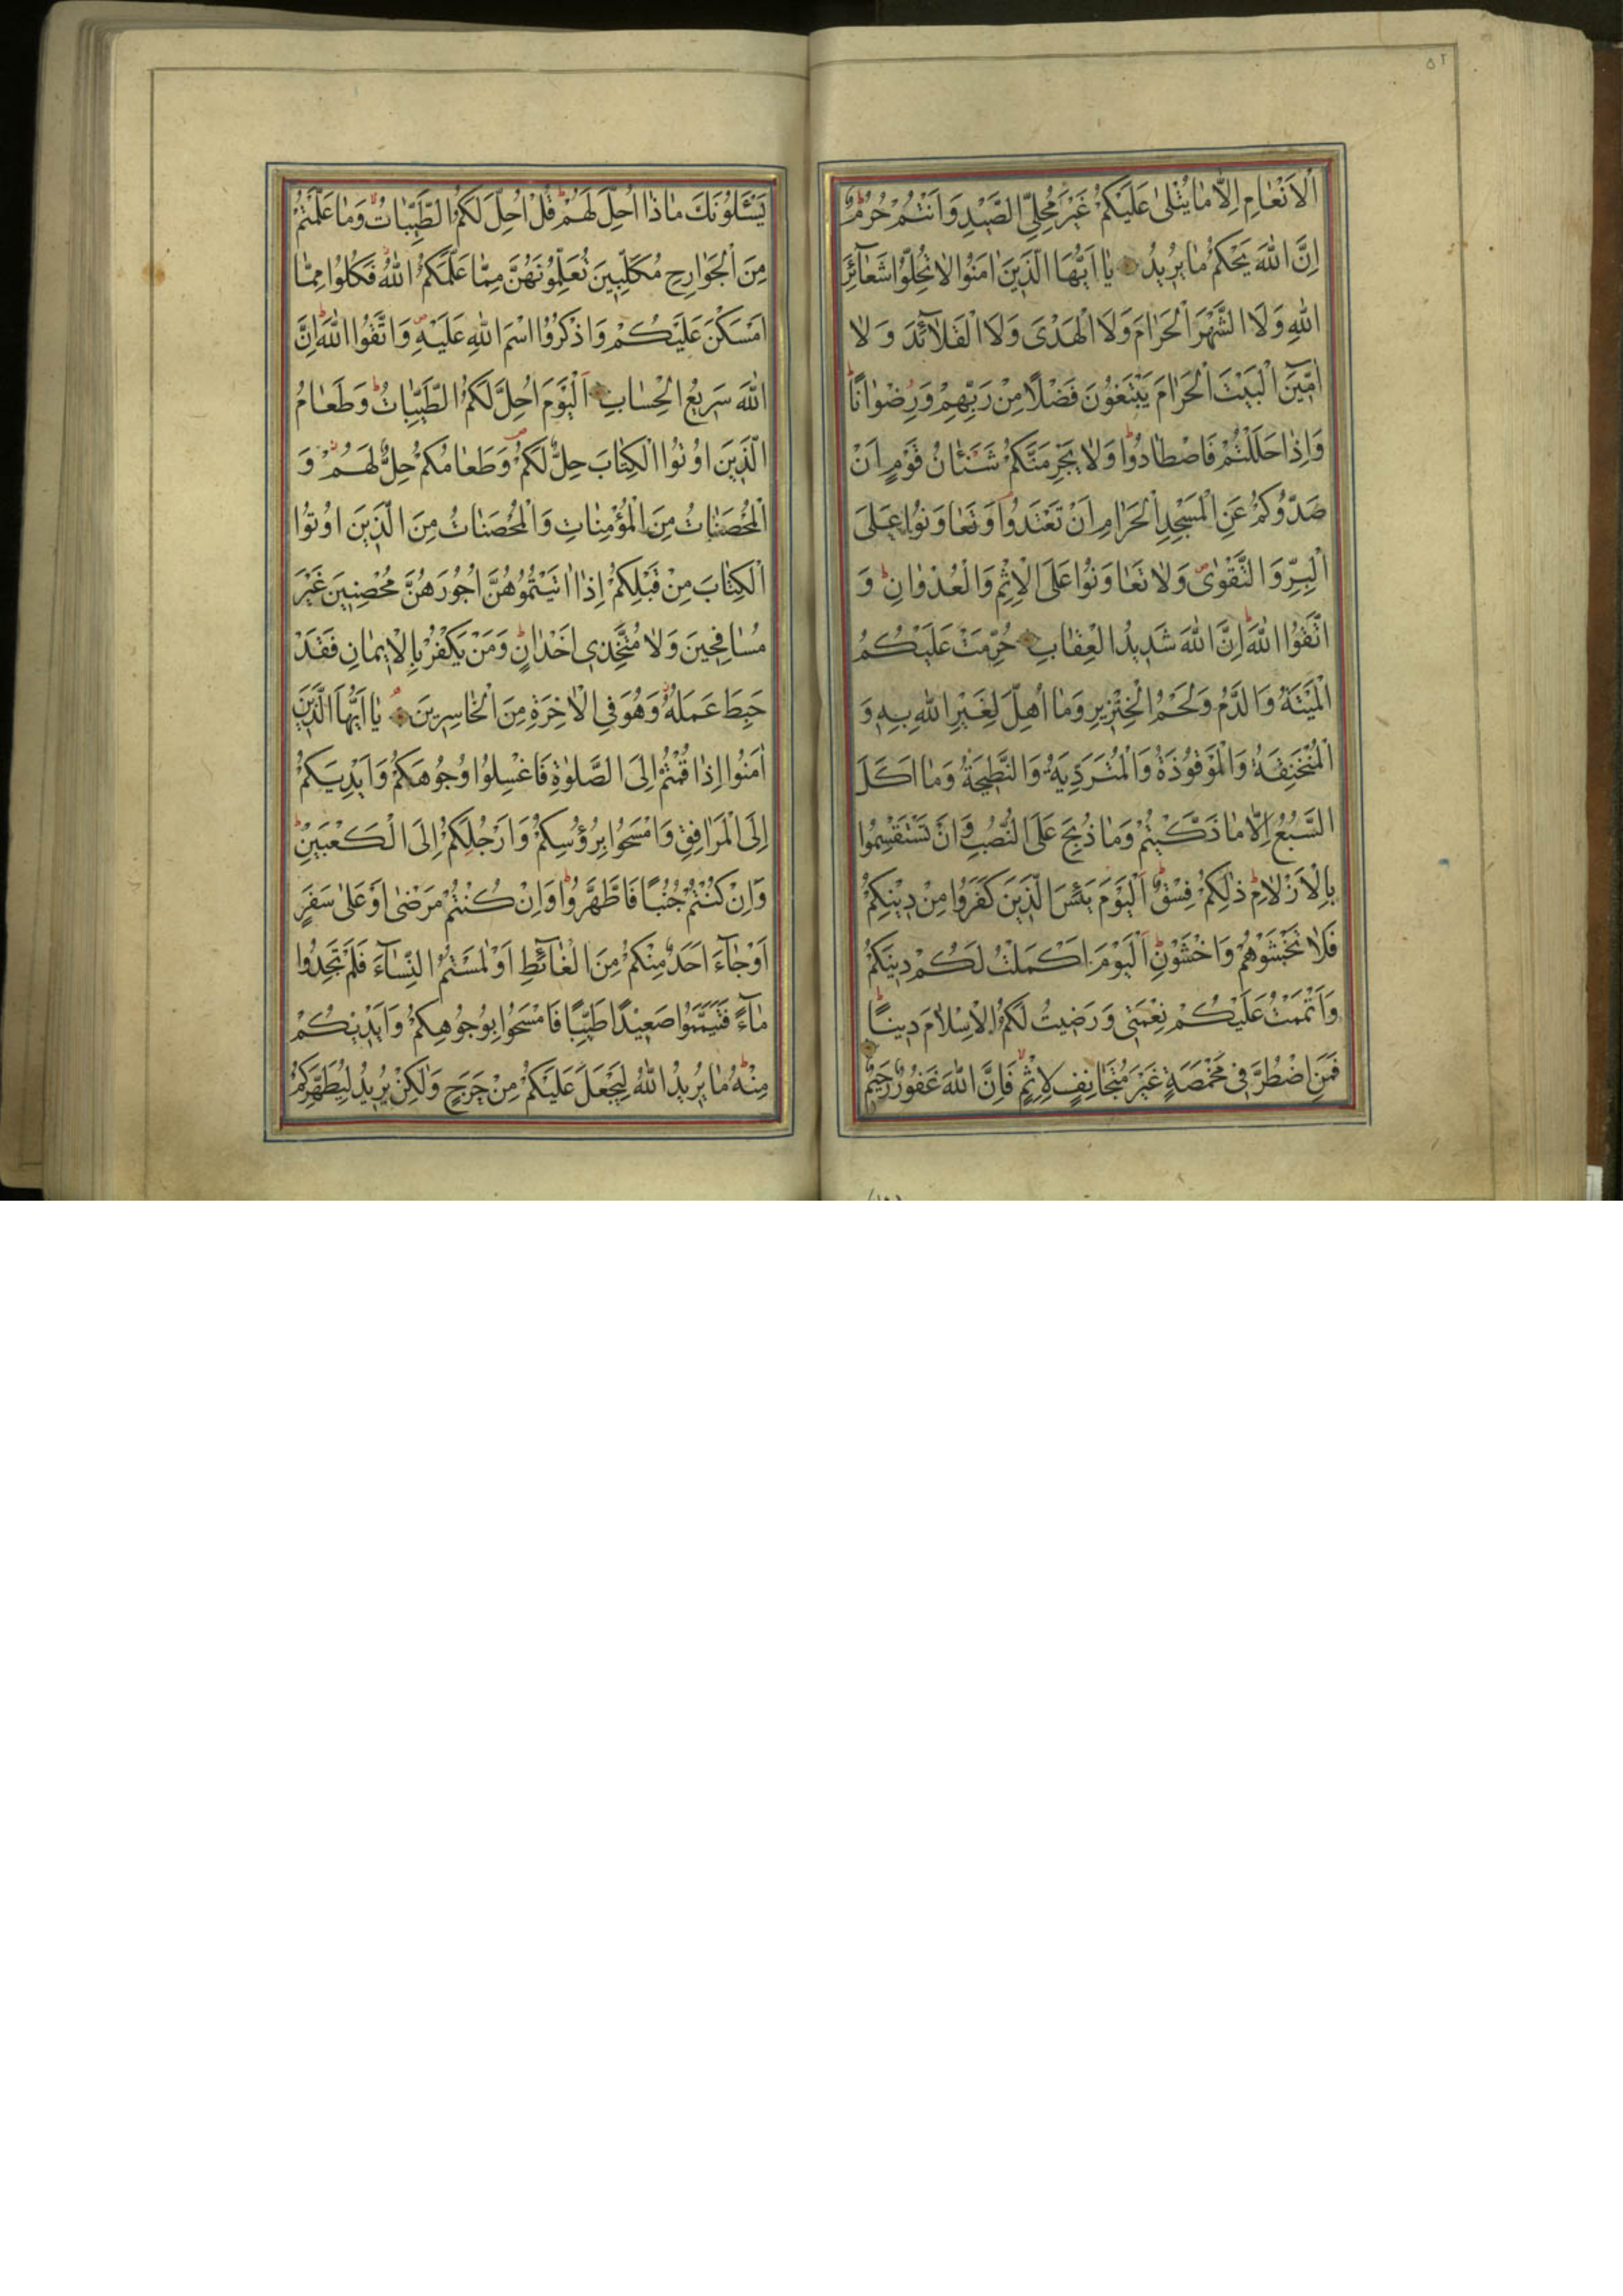 ٥٢
اَلْاَنْعٰامِ اِلّٰا مٰا يُتْلىٰ عَلَيْكُمْ غَيْرَ مُحِلِّي الصَّيْدِ وَاَنْتُمْ حُرُمٌ
اِنَّ اللّٰهَ يَحْكُمُ مٰا يُرِيدُ يٰا اَيُّهَا الَّذِينَ اٰمَنُوا لٰا تُحِلُّوا شَعٰٓائِرَ
اللّٰهِ وَلَا الشَّهْرَ الْحَرٰامَ وَلَا الْهَدْىَ وَلَا الْقَلٰٓائِدَ وَلٰا
اٰمِّينَ الْبَيْتَ الْحَرٰامَ يَبْتَغُونَ فَضْلًا مِنْ رَبِّهِمْ وَرِضْوٰانًا
وَاِذٰا حَلَلْتُمْ فَاصْطٰادُوا وَلٰا يَجْرِمَنَّكُمْ شَنَئٰانُ قَوْمٍ اَنْ
صَدُّوكُمْ عَنِ الْمَسْجِدِ الْحَرٰامِ اَنْ تَعْتَدُوا وَتَعٰاوَنُوا عَلَى
الْبِرِّ وَالتَّقْوٰى وَلٰا تَعٰاوَنُوا عَلَى الْاِثْمِ وَالْعُدْوٰانِ وَ
اتَّقُوا اللّٰهَ اِنَّ اللّٰهَ شَدِيدُ الْعِقٰابِ حُرِّمَتْ عَلَيْكُمُ
الْمَيْتَةُ وَالدَّمُ وَلَحْمُ الْخِنْزِيرِ وَمٰا اُهِلَّ لِغَيْرِ اللّٰهِ بِهِ وَ
الْمُنْخَنِقَةُ وَالْمَوْقُوذَةُ وَالْمُتَرَدِّيَةُ وَالنَّطِيحَةُ وَمٰا اَكَلَ
السَّبُعُ اِلّٰا مٰا ذَكَّيْتُمْ وَمٰا ذُبِحَ عَلَى النُّصُبِ وَاَنْ تَسْتَقْسِمُوا
بِالْاَزْلٰامِ ذٰلِكُمْ فِسْقٌ اَلْيَوْمَ يَئِسَ الَّذِينَ كَفَرُوا مِنْ دِينِكُمْ
فَلٰا تَخْشَوْهُمْ وَاخْشَوْنِ اَلْيَوْمَ اَكْمَلْتُ لَكُمْ دِينَكُمْ
وَاَتْمَمْتُ عَلَيْكُمْ نِعْمَتِي وَرَضِيتُ لَكُمُ الْاِسْلٰامَ دِينًا
فَمَنِ اضْطُرَّ فِي مَخْمَصَةٍ غَيْرَ مُتَجٰانِفٍ لِاِثْمٍ فَاِنَّ اللّٰهَ غَفُورٌ رَحِيمٌ
يَسْئَلُونَكَ مٰا ذٰا اُحِلَّ لَهُمْ قُلْ اُحِلَّ لَكُمُ الطَّيِّبٰاتُ وَمٰا عَلَّمْتُمْ
مِنَ الْجَوٰارِحِ مُكَلِّبِينَ تُعَلِّمُونَهُنَّ مِمّٰا عَلَّمَكُمُ اللّٰهُ فَكُلُوا مِمّٰا
اَمْسَكْنَ عَلَيْكُمْ وَاذْكُرُوا اسْمَ اللّٰهِ عَلَيْهِ وَاتَّقُوا اللّٰهَ اِنَّ
اللّٰهَ سَرِيعُ الْحِسٰابِ اَلْيَوْمَ اُحِلَّ لَكُمُ الطَّيِّبٰاتُ وَطَعٰامُ
الَّذِينَ اُوتُوا الْكِتٰابَ حِلٌّ لَكُمْ وَطَعٰامُكُمْ حِلٌّ لَهُمْ وَ
الْمُحْصَنٰاتُ مِنَ الْمُؤْمِنٰاتِ وَالْمُحْصَنٰاتُ مِنَ الَّذِينَ اُوتُوا
الْكِتٰابَ مِنْ قَبْلِكُمْ اِذٰا اٰتَيْتُمُوهُنَّ اُجُورَهُنَّ مُحْصِنِينَ غَيْرَ
مُسٰافِحِينَ وَلٰا مُتَّخِذِي اَخْدٰانٍ وَمَنْ يَكْفُرْ بِالْاِيمٰانِ فَقَدْ
حَبِطَ عَمَلُهُ وَهُوَ فِي الْاٰخِرَةِ مِنَ الْخٰاسِرِينَ يٰا اَيُّهَا الَّذِينَ
اٰمَنُوا اِذٰا قُمْتُمْ اِلَى الصَّلٰوةِ فَاغْسِلُوا وُجُوهَكُمْ وَاَيْدِيَكُمْ
اِلَى الْمَرٰافِقِ وَامْسَحُوا بِرُؤُسِكُمْ وَاَرْجُلِكُمْ اِلَى الْكَعْبَيْنِ
وَاِنْ كُنْتُمْ جُنُبًا فَاطَّهَّرُوا وَاِنْ كُنْتُمْ مَرْضٰى اَوْ عَلىٰ سَفَرٍ
اَوْ جٰٓاءَ اَحَدٌ مِنْكُمْ مِنَ الْغٰٓائِطِ اَوْ لٰمَسْتُمُ النِّسٰٓاءَ فَلَمْ تَجِدُوا
مٰٓاءً فَتَيَمَّمُوا صَعِيدًا طَيِّبًا فَامْسَحُوا بِوُجُوهِكُمْ وَاَيْدِيكُمْ
مِنْهُ مٰا يُرِيدُ اللّٰهُ لِيَجْعَلَ عَلَيْكُمْ مِنْ حَرَجٍ وَلٰكِنْ يُرِيدُ لِيُطَهِّرَكُمْ